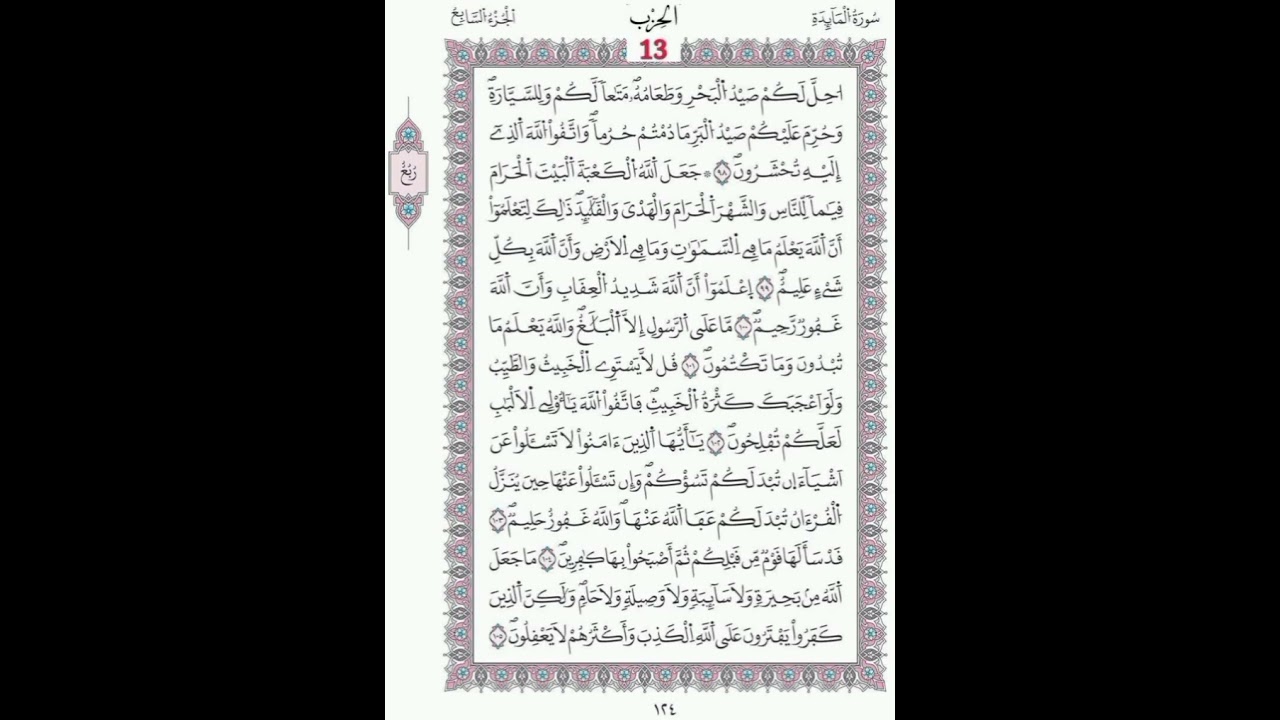 سُورَةُ الْمَائِدَةِ
الحِزْب
الْجُزْءُ السَّابِعُ
13
رُبُعُ
اُحِلَّ لَكُمْ صَيْدُ اُلْبَحْرِ وَطَعَامُهُۥ مَتَٰعاٗ لَّكُمْ وَلِلسَّيَّارَةِۖ
وَحُرِّمَ عَلَيْكُمْ صَيْدُ اُلْبَرِّ مَا دُمْتُمْ حُرُماٗۖ وَاتَّقُواْ اُللَّهَ اَلذِےٓ
إِلَيْهِ تُحْشَرُونَۖ ٩٨ ۞ جَعَلَ اَللَّهُ اُلْكَعْبَةَ اَلْبَيْتَ اَلْحَرَامَ
قِيَٰماٗ لِّلنَّاسِ وَالشَّهْرَ اَلْحَرَامَ وَالْهَدْىَ وَالْقَلَٰٓئِدَۖ ذَٰلِكَ لِتَعْلَمُوٓاْ
أَنَّ اَللَّهَ يَعْلَمُ مَا فِے اِلسَّمَٰوَٰتِ وَمَا فِے اِلَارْضِ وَأَنَّ اَللَّهَ بِكُلِّ
شَےْءٍ عَلِيمٌۖ ٩٩ اِعْلَمُوٓاْ أَنَّ اَللَّهَ شَدِيدُ اُلْعِقَابِ وَأَنَّ اَللَّهَ
غَفُورٞ رَّحِيمٞۖ ١٠٠ مَّا عَلَى اَلرَّسُولِ إِلَّا اَلْبَلَٰغُۖ وَاللَّهُ يَعْلَمُ مَا
تُبْدُونَ وَمَا تَكْتُمُونَۖ ١٠١ قُل لَّا يَسْتَوِے اِلْخَبِيثُ وَالطَّيِّبُ
وَلَوَ اَعْجَبَكَ كَثْرَةُ اُلْخَبِيثِۖ فَاتَّقُواْ اُللَّهَ يَٰٓأُوْلِے اِلَالْبَٰبِ
لَعَلَّكُمْ تُفْلِحُونَۖ ١٠٢ يَٰٓأَيُّهَا اَلذِينَ ءَامَنُواْ لَا تَسْـَٔلُواْ عَنَ
اَشْيَآءَ اِن تُبْدَ لَكُمْ تَسُؤْكُمْۖ وَإِن تَسْـَٔلُواْ عَنْهَا حِينَ يُنَزَّلُ
اُلْقُرْءَانُ تُبْدَ لَكُمْ عَفَا اَللَّهُ عَنْهَاۖ وَاللَّهُ غَفُورٌ حَلِيمٞۖ ١٠٣
قَدْ سَأَلَهَا قَوْمٞ مِّن قَبْلِكُمْ ثُمَّ أَصْبَحُواْ بِهَا كَٰفِرِينَۖ ١٠٤ مَا جَعَلَ
اَللَّهُ مِنۢ بَحِيرَةٖ وَلَا سَآئِبَةٖ وَلَا وَصِيلَةٖ وَلَا حَامٖۖ وَلَٰكِنَّ اَلذِينَ
كَفَرُواْ يَفْتَرُونَ عَلَى اَللَّهِ اِلْكَذِبَ وَأَكْثَرُهُمْ لَا يَعْقِلُونَۖ ١٠٥
١٢٤